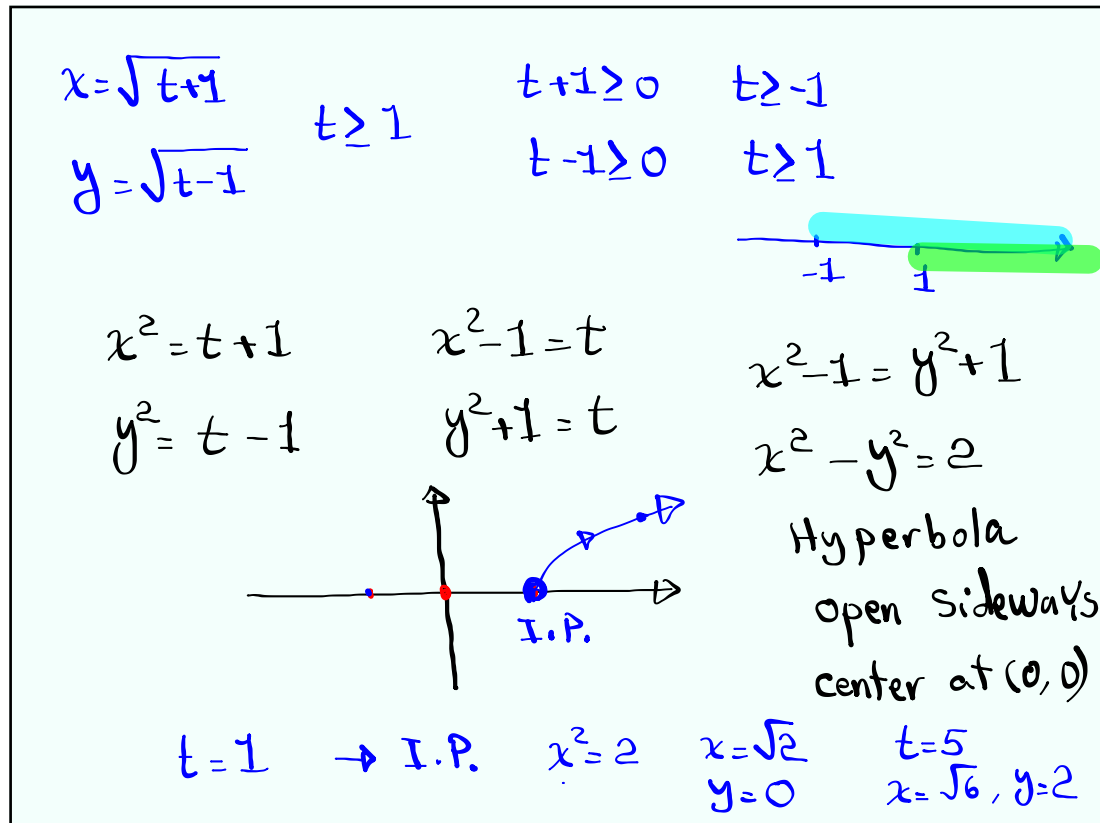 x = √t+1
y = √t-1
t ≥ 1
t+1 ≥ 0 t ≥ -1
t-1 ≥ 0 t ≥ 1
-1 1
x² = t+1 x²-1 = t
y² = t-1 y²+1 = t
x²-1 = y²+1
x² - y² = 2
Hyperbola
open sideways
center at (0,0)
I.P.
t = 1 → I.P. x² = 2 x = √2 t = 5
y = 0 x = √6, y = 2